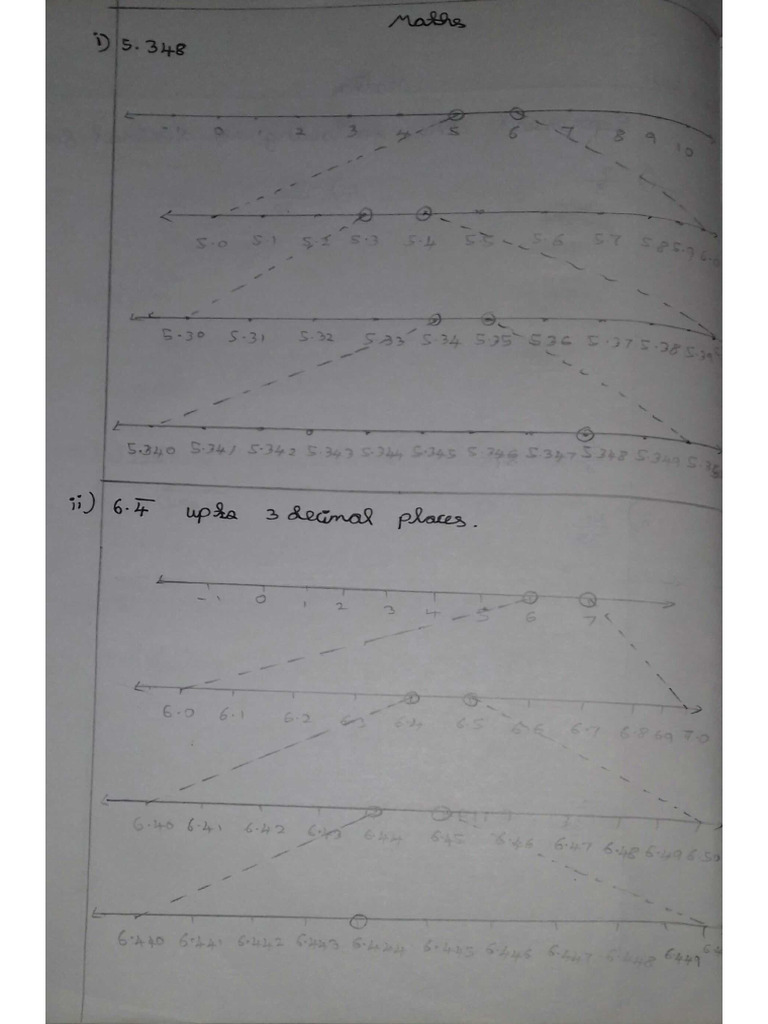 Maths
i) 5.348
0 1 2 3 4 5 6 7 8 9 10
5.0 5.1 5.2 5.3 5.4 5.5 5.6 5.7 5.8 5.9 6.0
5.30 5.31 5.32 5.33 5.34 5.35 5.36 5.37 5.38 5.39
5.340 5.341 5.342 5.343 5.344 5.345 5.346 5.347 5.348 5.349 5.35
ii) 6.4̅ upto 3 decimal places.
-1 0 1 2 3 4 5 6 7
6.0 6.1 6.2 6.3 6.4 6.5 6.6 6.7 6.8 6.9 7.0
6.40 6.41 6.42 6.43 6.44 6.45 6.46 6.47 6.48 6.49 6.50
6.440 6.441 6.442 6.443 6.444 6.445 6.446 6.447 6.448 6.449